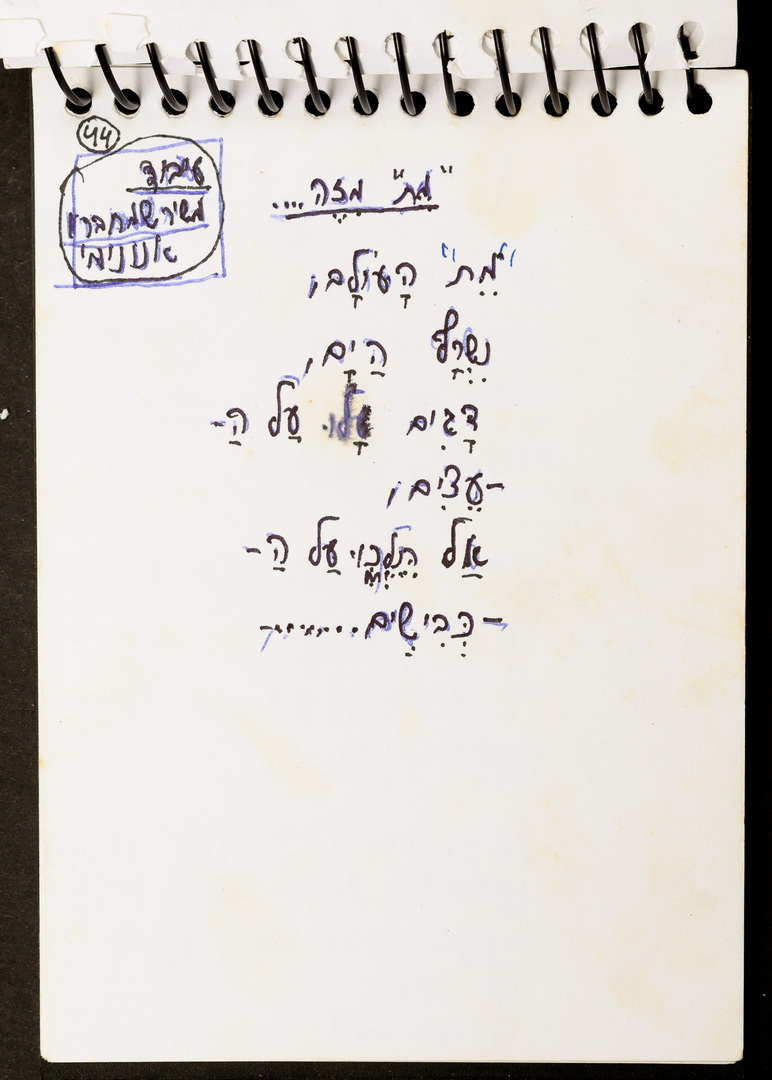 44
עיבוד
משיר שמחברו
אנונימי
"מת" מזה....
"מֵת" הָעוֹלָם,
נִשְׂרַף הַיָם,
דָגִים עָלוּ עַל הַ-
-עֵצִים,
אַל תֵלְכוּ עַל הַ-
-כְּבִישִׁים..........